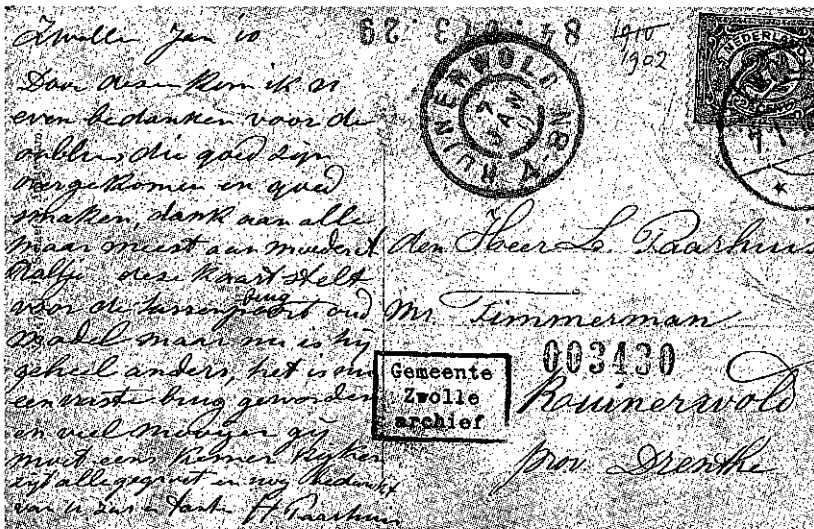 Zwolle Jan 10
Door deze kom ik u
even bedanken voor de
die goed zijn
overgekomen en goed
smaken, dank aan alle
maar meest aan moeder en
deze kaart stelt
voor de sassenpoort oud
brug
model maar nu is hij
geheel anders, het is nu
een vaste brug geworden
en veel mooijer gij
moet eens komen kijken
zijt alle gegroet en nog bedankt
van u zus en tante H Paarhuis
84: 073.29
1910
1902
RUINERWOLD
JAN
NEDERLAND
den Heer L. Paarhuis
Mr Timmerman
003430
Gemeente
Zwolle
archief
Ruinerwold
prov Drenthe